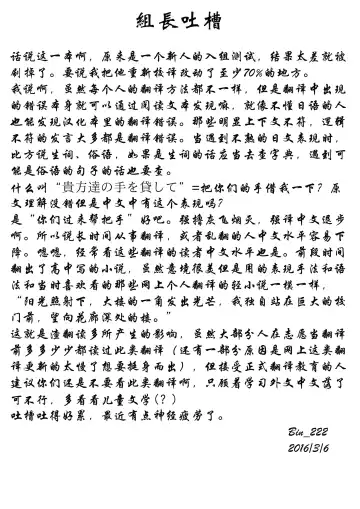 組長吐槽
话说这一本啊，原来是一个新人的入组测试，结果太差就被
刷掉了。要说我把他重新校译改动了至少70%的地方。
我说啊，虽然每个人的翻译方法都不一样，但是翻译中出现
的错误本身就可以通过阅读文本发现嘛，就像不懂日语的人
也能发现汉化本里的翻译错误。那些明显上下文不符，逻辑
不符的发言大多都是翻译错误。当遇到不熟的日文表现时，
比方说生词、俗语，如果是生词的话应当去查字典，遇到可
能是俗语的句子的话也要查。
什么叫“貴方達の手を貸して”=把你们的手借我一下？原
文理解没错但是中文中有这个表现吗？
是“你们过来帮把手”好吧。强撸灰飞烟灭，强译中文退步
啊。所以说长时间从事翻译，或者乱翻的人中文水平容易下
降。嗯嗯，经常看这些翻译的读者中文水平也是。前段时间
翻出了高中写的小说，虽然意境很美但是用的表现手法和语
法和当时喜欢看的那些网上个人翻译的轻小说一模一样，
“阳光照射下，大楼的一角发出光芒，我独自站在巨大的校
门前，望向花廊深处的楼。”
这就是渣翻读多所产生的影响，虽然大部分人在志愿当翻译
前多多少少都读过此类翻译（还有一部分原因是网上这类翻
译更新的太慢了想要挺身而出），但接受正式翻译教育的人
建议你们还是不要看此类翻译啊，只顾着学习外文中文落了
可不行，多看看儿童文学(？)
吐槽吐得好累，最近有点神经疲劳了。
Bin_222
2016/3/6